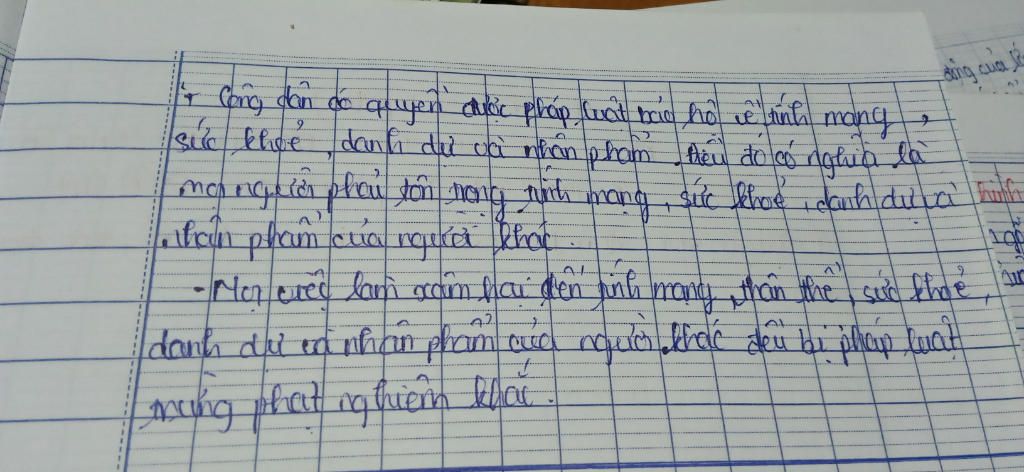 + Công dân có quyền được pháp luật bảo hộ về tính mạng,
sức khoẻ, danh dự và nhân phẩm. Điều đó có nghĩa là
mọi người phải tôn trọng tính mạng, sức khoẻ, danh dự và
nhân phẩm của người khác.
- Mọi việc làm xâm hại đến tính mạng, thân thể, sức khoẻ,
danh dự và nhân phẩm của người khác đều bị pháp luật
trừng phạt nghiêm khắc.
của
hình